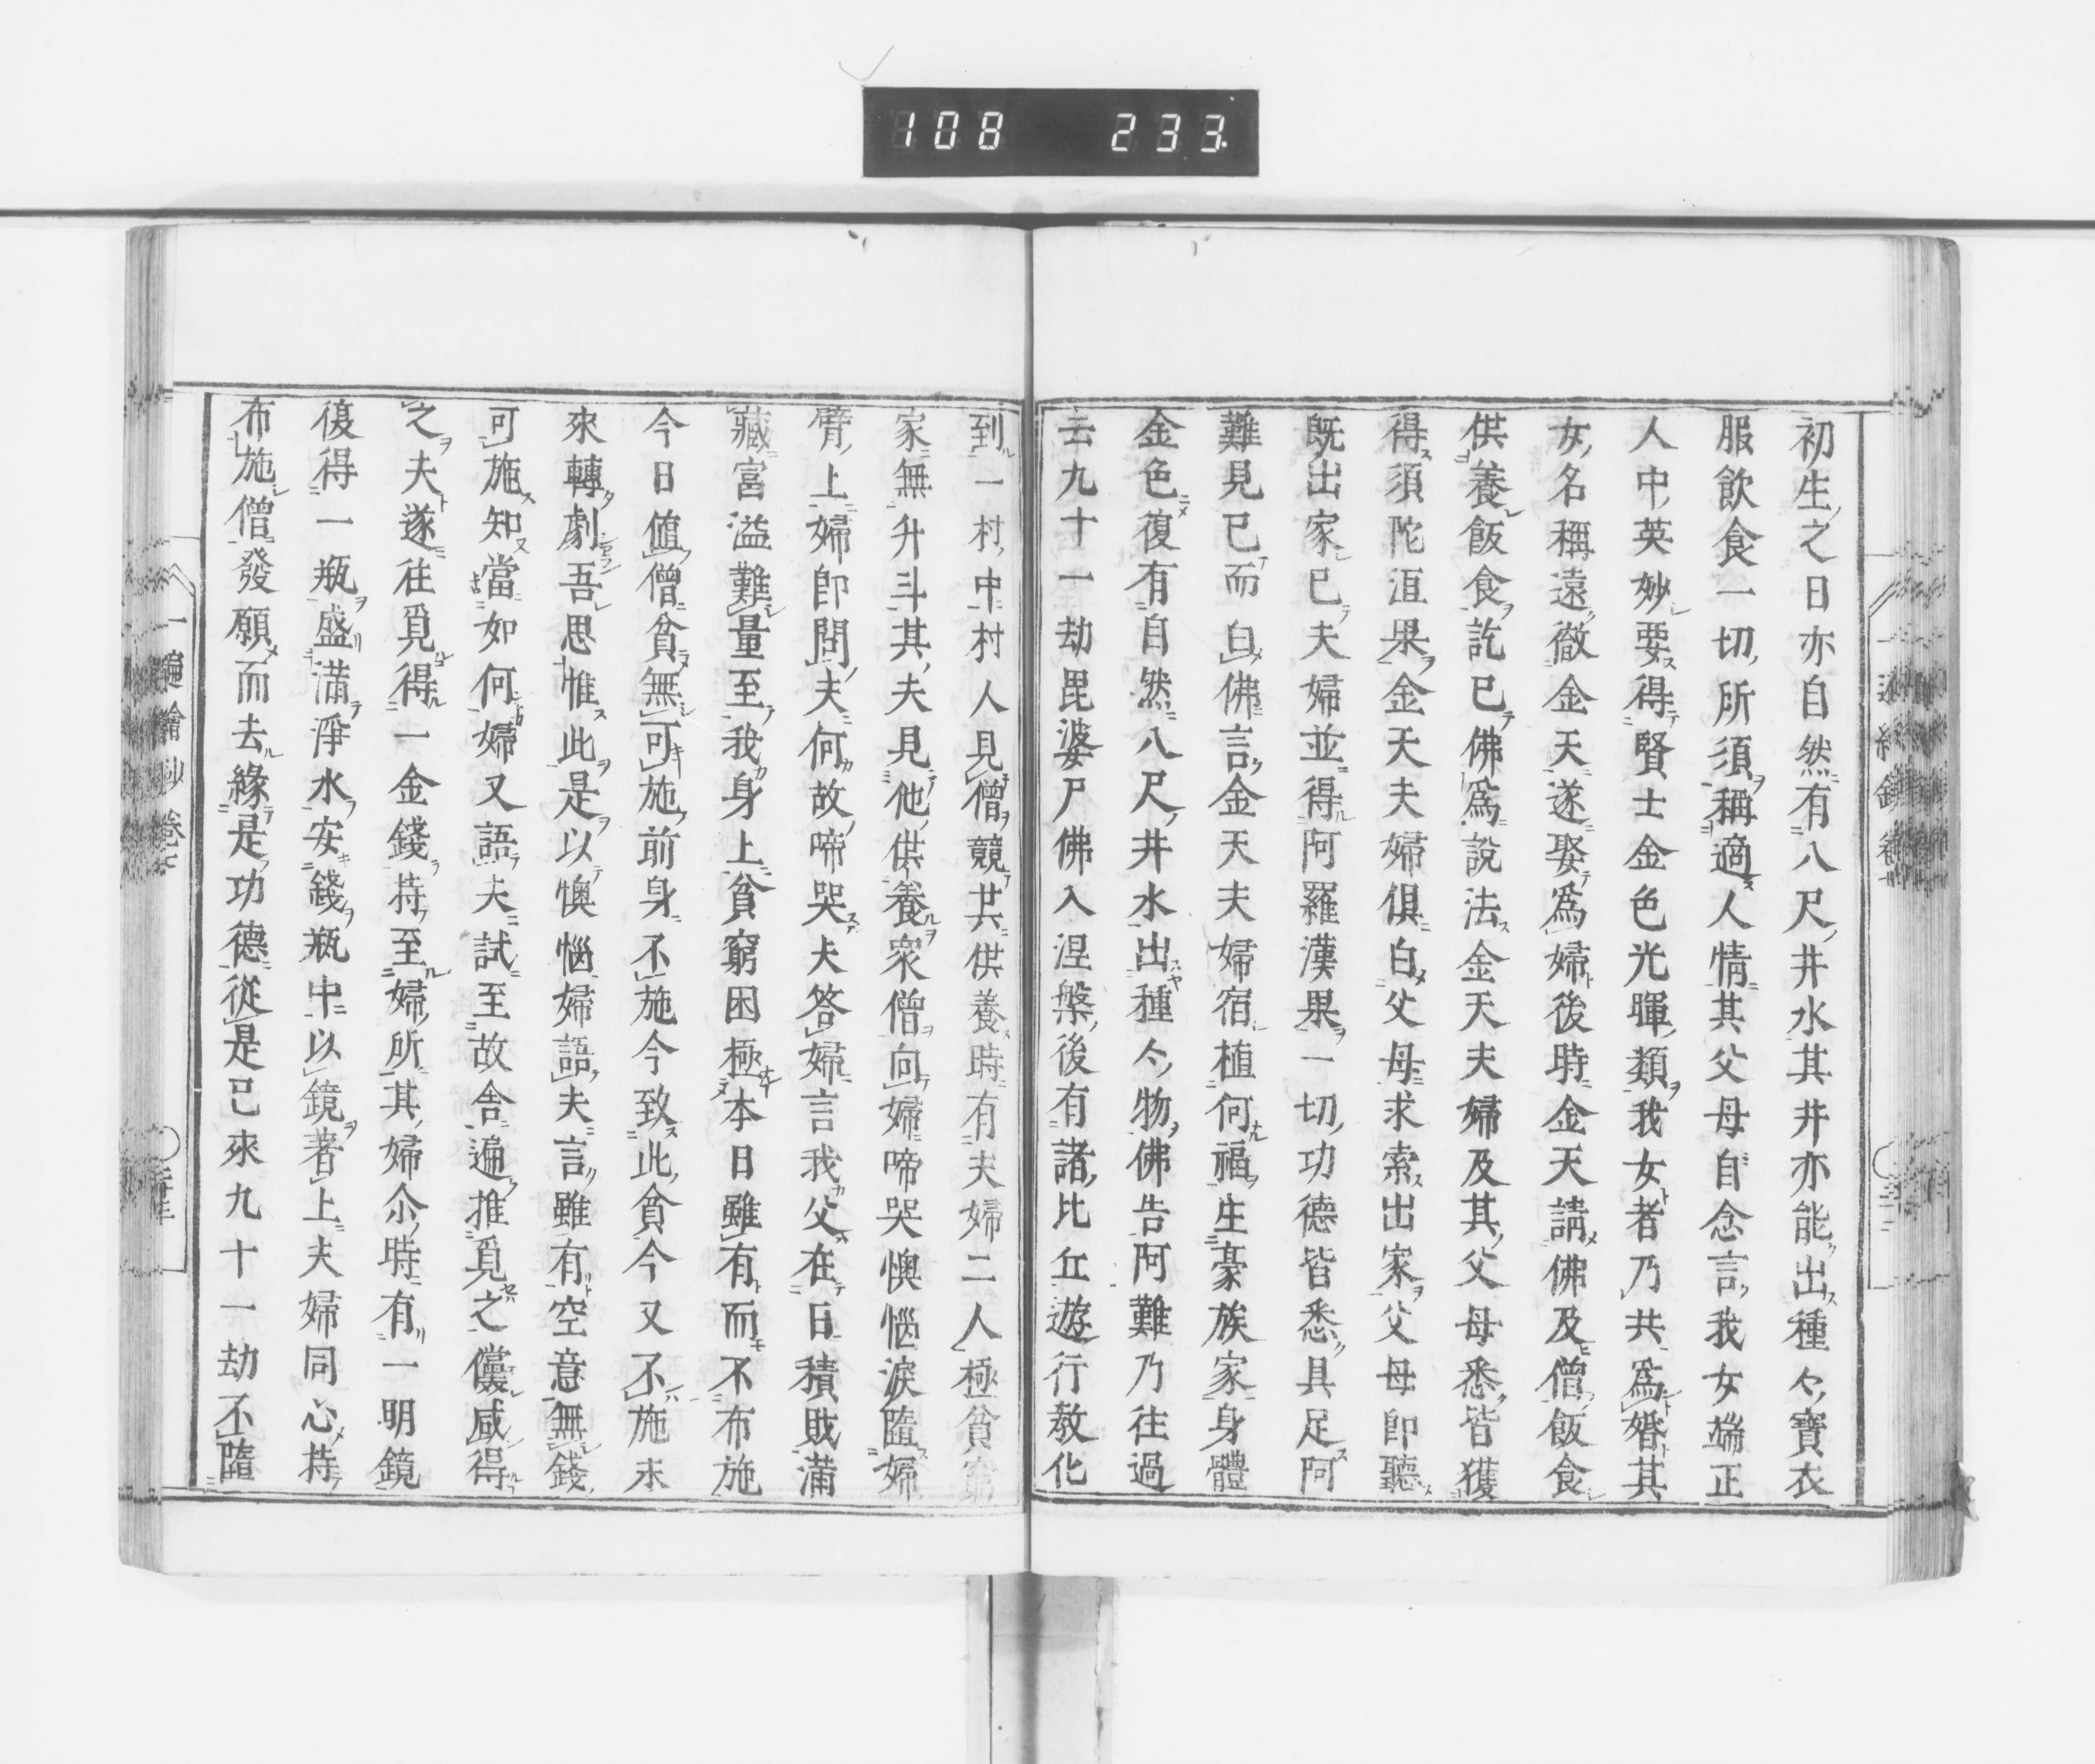 108 233
初生之日亦自然有八尺井水其井亦能出種々寶衣
服飲食一切所須稱適人情其父母自念言我女端正
人中英妙要得賢士金色光暉類我女者乃共爲婚其
女名稱遠徹金天遂娶爲婦後時金天請佛及僧飯食
供養飯食訖已佛爲說法金天夫婦及其父母悉皆獲
得須陀洹果金天夫婦俱白父母求索出家父母卽聽
旣出家已夫婦並得阿羅漢果一切功德皆悉具足阿
難見已而白佛言金天夫婦宿植何福生豪族家身體
金色復有自然八尺井水出種々物佛告阿難乃往過
去九十一劫毘婆尸佛入涅槃後有諸比丘遊行敎化
到一村中村人見僧競共供養時有夫婦二人極貧窮
家無升斗其夫見他供養衆僧向婦啼哭懊惱淚墮婦
臂上婦卽問夫何故啼哭夫答婦言我父在日積財滿
藏富溢難量至我身上貧窮困極本日雖有而不布施
今日値僧貧無可施前身不施今致此貧今又不施未
來轉劇吾思惟此是以懊惱婦語夫言雖有空意無錢
可施知當如何婦又語夫試至故舍遍推覓之儻咸得
之夫遂往覓得一金錢持至婦所其婦尒時有一明鏡
復得一瓶盛滿淨水安錢瓶中以鏡著上夫婦同心持
布施僧發願而去緣是功德從是已來九十一劫不墮
一遍繪鈔卷七